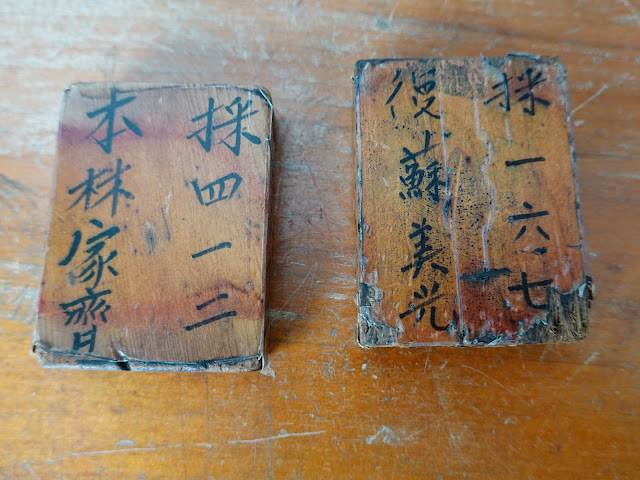 採四一二
本林家齊
採一六七
復蘇美光